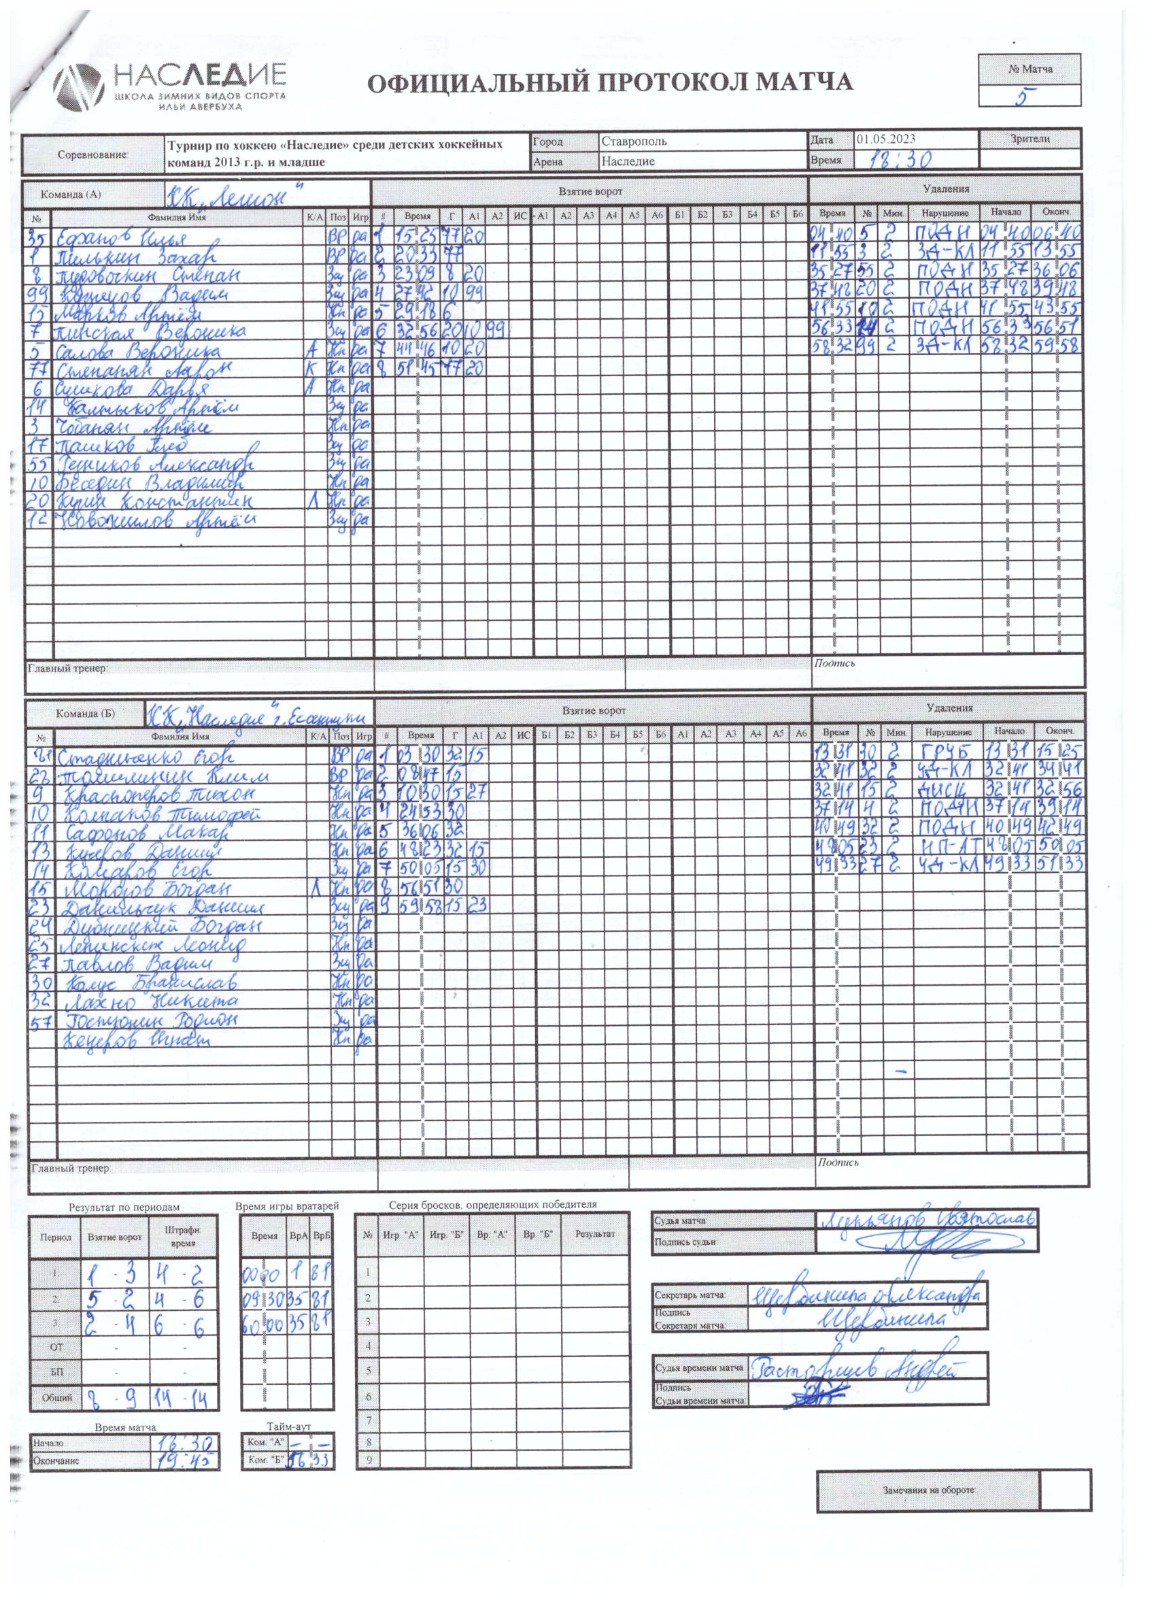 НАСЛЕДИЕ
ШКОЛА ЗИМНИХ ВИДОВ СПОРТА
ИЛЬИ АВЕРБУХА
ОФИЦИАЛЬНЫЙ ПРОТОКОЛ МАТЧА
№ Матча
5
Соревнование: Турнир по хоккею «Наследие» среди детских хоккейных команд 2013 г.р. и младше
Город Ставрополь Дата 01.05.2023 Зрители
Арена Наследие Время 18:30
Команда (А) ХК "Легион" Взятие ворот Удаления
№ Фамилия Имя К/А Поз Игр # Время Г А1 А2 ИС А1 А2 А3 А4 А5 А6 Б1 Б2 Б3 Б4 Б5 Б6 Время № Мин. Нарушение Начало Оконч.
35 Ефанов Илья ВР да 1 15 25 77 20 04 40 5 2 ПОДН 04 40 06 40
1 Пилькин Захар ВР да 2 20 33 77 11 55 3 2 ЗД-КЛ 11 55 13 55
8 Степан Зщ да 3 23 09 8 20 35 27 55 2 ПОДН 35 27 36 06
99 Кузнецов Вадим Зщ да 4 27 42 10 99 37 48 20 2 ПОДН 37 48 39 48
15 Марков Артём Нп да 5 29 18 6 41 55 10 2 ПОДН 41 55 43 55
7 Пинская Вероника Зщ да 6 32 56 20 10 99 56 33 14 2 ПОДН 56 33 56 51
5 Салова Вероника А Нп да 7 44 46 10 20 58 32 99 2 ЗД-КЛ 58 32 59 58
77 Степанян Аарон К Нп да 8 51 45 77 20
6 Сушкова Дарья А Нп да
14 Калтыков Артём Зщ да
3 Чобанян Артём Нп да
17 Пашков Глеб Зщ да
55 Александр Зщ да
10 Беседин Владимир Нп да
20 Константин А Нп да
12 Новожилов Артём Зщ да
Главный тренер: Подпись
Команда (Б) ХК "Наследие" г. Ессентуки Взятие ворот Удаления
№ Фамилия Имя К/А Поз Игр # Время Г А1 А2 ИС Б1 Б2 Б3 Б4 Б5 Б6 А1 А2 А3 А4 А5 А6 Время № Мин. Нарушение Начало Оконч.
81 Стадниченко Егор ВР да 1 03 30 32 15 13 31 30 2 ГРУБ 13 31 15 25
22 Клим ВР да 2 08 47 15 32 41 32 2 УД-КЛ 32 41 34 41
9 Красноперов Тихон Нп да 3 10 30 15 27 32 41 15 2 ДИСЦ 32 41 32 56
10 Колпаков Тимофей Нп да 4 24 53 30 37 14 4 2 ПОДН 37 14 39 14
11 Сафонов Макар Нп да 5 36 06 32 40 49 32 2 ПОДН 40 49 42 49
13 Даниил Нп да 6 48 23 32 15 48 05 23 2 НП-АТ 48 05 50 05
14 Комаров Егор Зщ да 7 50 05 15 30 49 33 27 2 УД-КЛ 49 33 51 33
15 Морозов Богдан А Нп да 8 56 51 30
23 Данильчук Даниил Зщ да 9 59 58 15 23
24 Дубницкий Богдан Зщ да
25 Леонид Нп да
27 Павлов Вадим Зщ да
30 Колус Бранислав Нп да
32 Лахно Никита Нп да
57 Родион Зщ да
Кецеров Игнат Нп да
Главный тренер: Подпись
Результат по периодам
Период Взятие ворот Штрафн время
1 1 - 3 4 - 2
2 5 - 2 4 - 6
3 2 - 4 6 - 6
ОТ - -
БП - -
Общий 8 - 9 14 - 14
Время матча
Начало 18:30
Окончание 19:45
Время игры вратарей
Время ВрА ВрБ
00 00 1 81
09 30 35 81
60 00 35 81
Тайм-аут
Ком. "А" - -
Ком. "Б" 56 33
Серия бросков, определяющих победителя
№ Игр. "А" Игр. "Б" Вр. "А" Вр "Б" Результат
1
2
3
4
5
6
7
8
9
Судья матча Лукьянов Святослав
Подпись судьи
Секретарь матча: Щербинина Александра
Подпись Секретаря матча: Щербинина
Судья времени матча Расторгуев Андрей
Подпись Судьи времени матча
Замечания на обороте: